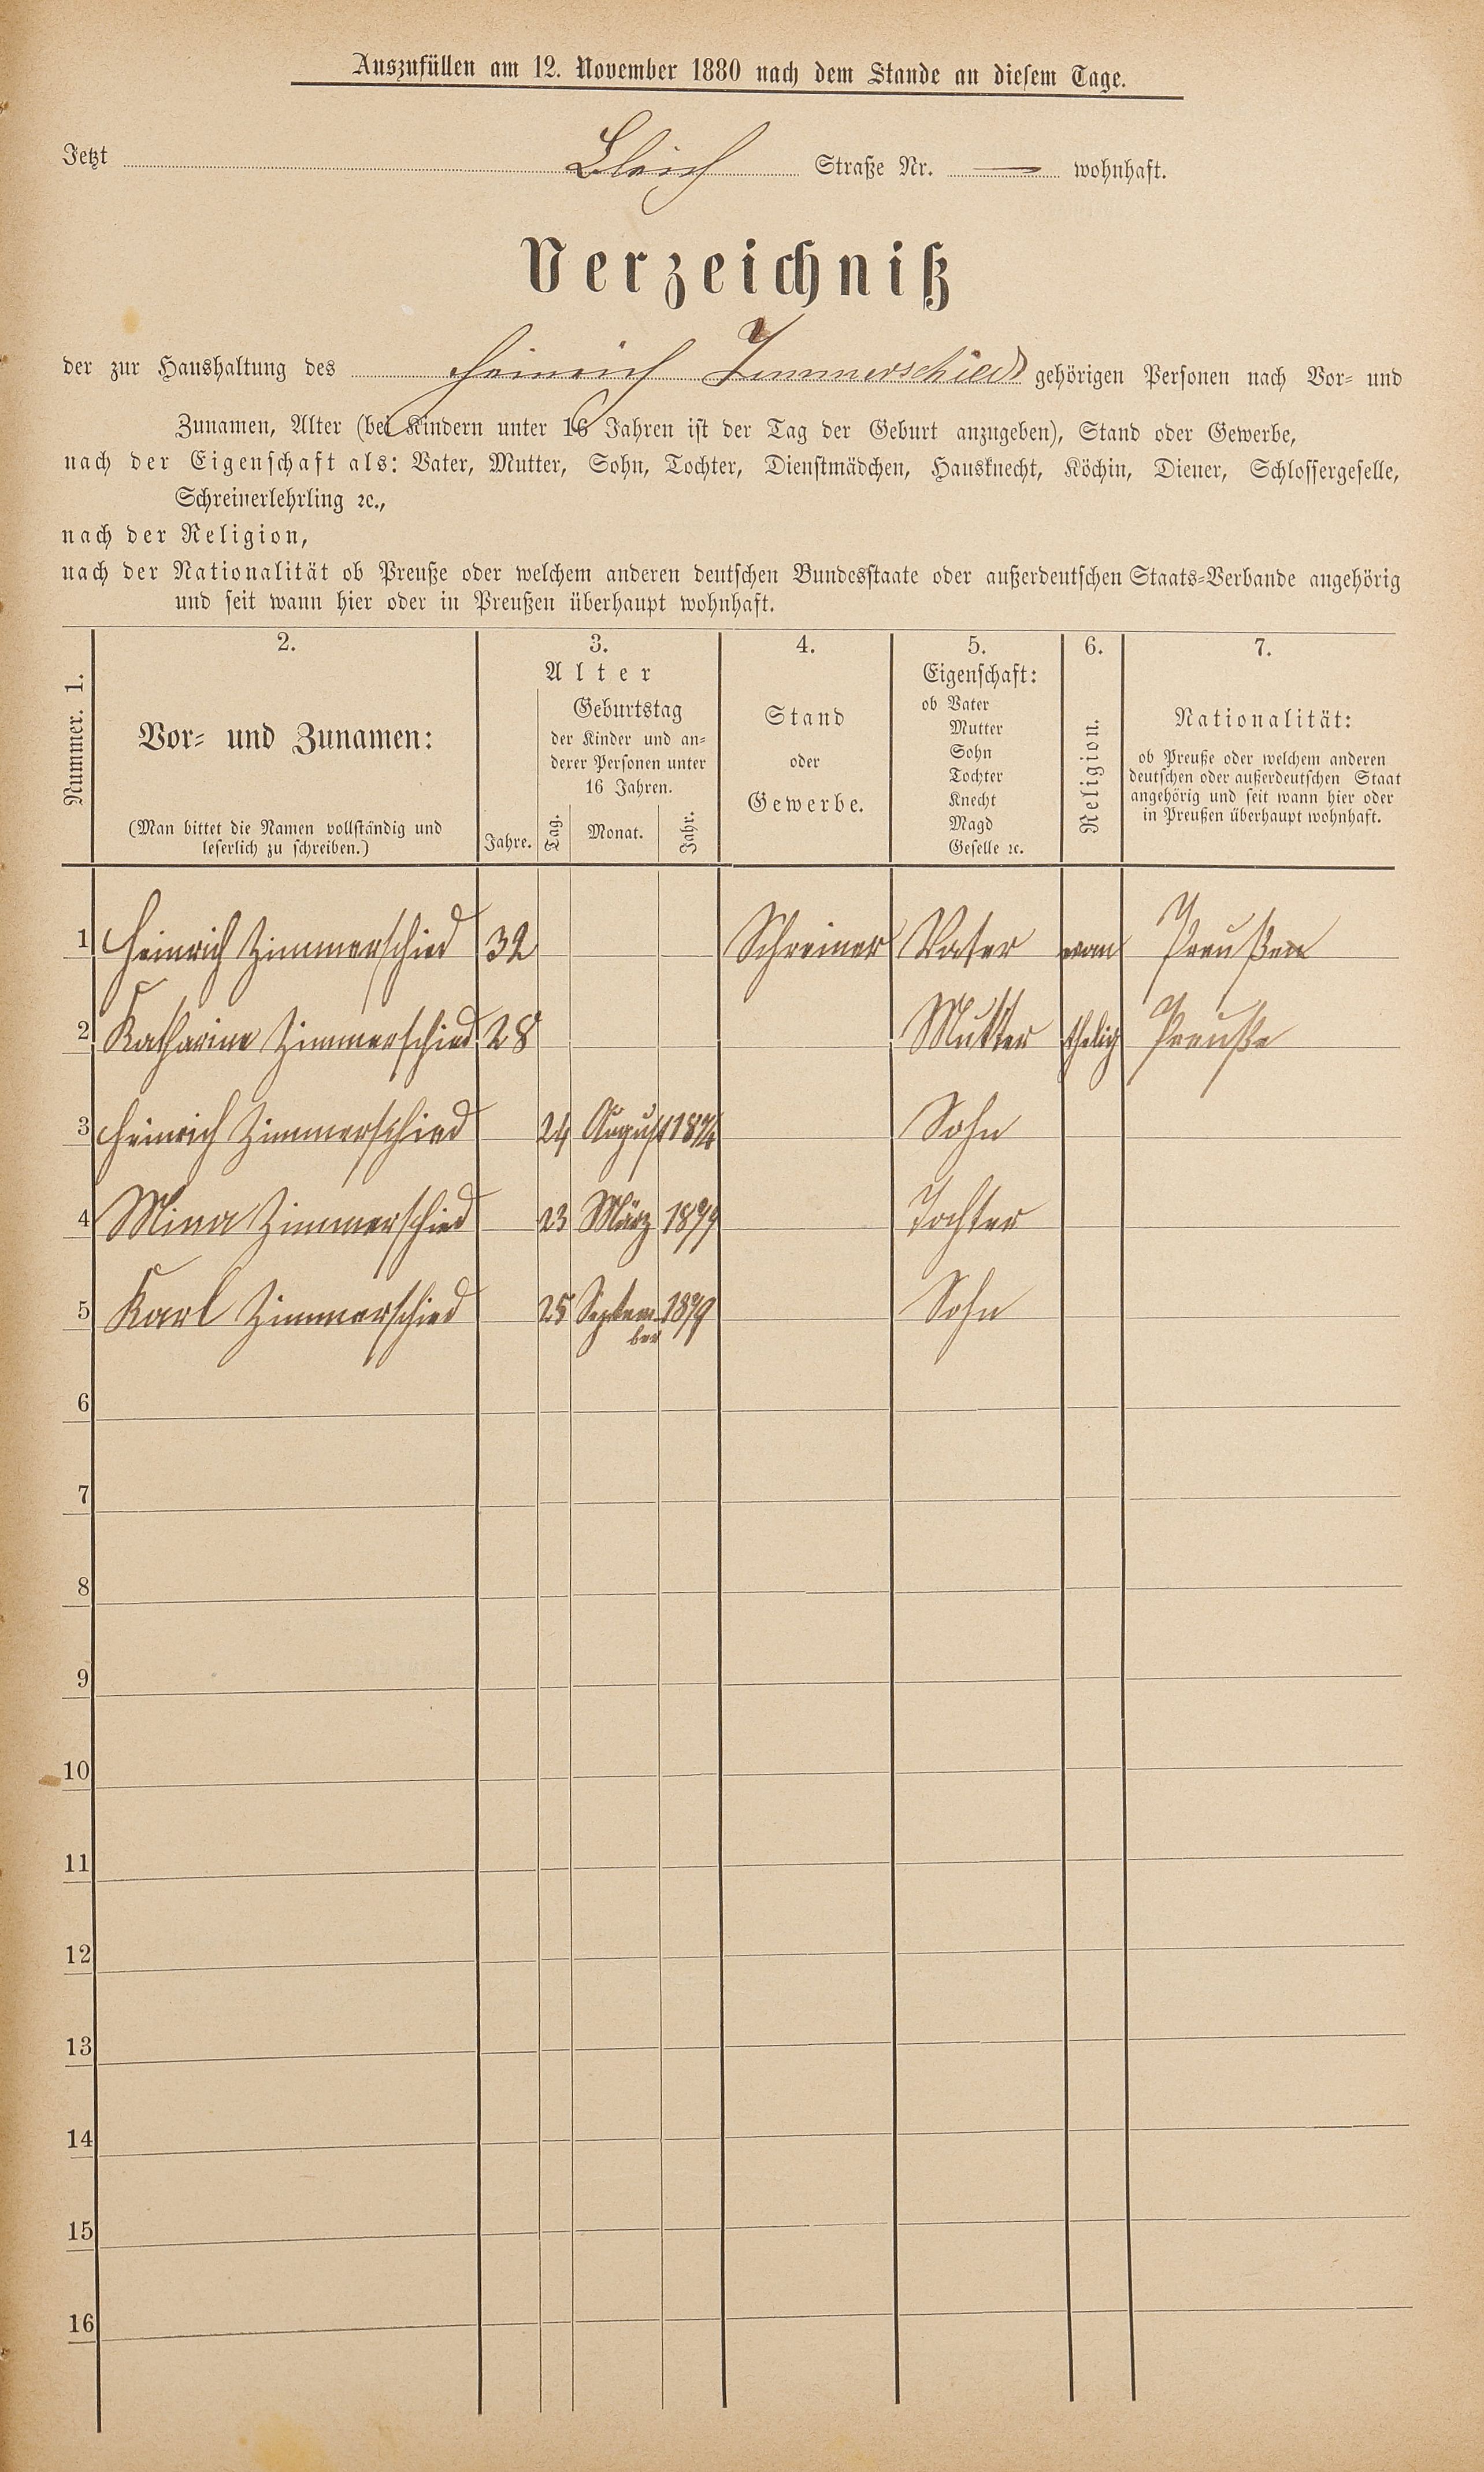 Auszufüllen am 12. November 1880 nach dem Stande an diesem Tage.
Jetzt Bleich Straße Nr. — wohnhaft.
Verzeichniß
der zur Haushaltung des Heinrich Zimmerschied gehörigen Personen nach Vor- und
Zunamen, Alter (bei Kindern unter 16 Jahren ist der Tag der Geburt anzugeben), Stand oder Gewerbe,
nach der Eigenschaft als: Vater, Mutter, Sohn, Tochter, Dienstmädchen, Hausknecht, Köchin, Diener, Schlossergeselle,
Schreinerlehrling ꝛc.,
nach der Religion,
nach der Nationalität ob Preuße oder welchem anderen deutschen Bundesstaate oder außerdeutschen Staats-Verbande angehörig
und seit wann hier oder in Preußen überhaupt wohnhaft.
Nummer. 1.
2.
Vor- und Zunamen:
(Man bittet die Namen vollständig und
leserlich zu schreiben.)
3.
Alter
Geburtstag
der Kinder und an-
derer Personen unter
16 Jahren.
Jahre. Tag. Monat. Jahr.
4.
Stand
oder
Gewerbe.
5.
Eigenschaft:
ob Vater
Mutter
Sohn
Tochter
Knecht
Magd
Geselle ꝛc.
6.
Religion.
7.
Nationalität:
ob Preuße oder welchem anderen
deutschen oder außerdeutschen Staat
angehörig und seit wann hier oder
in Preußen überhaupt wohnhaft.
1 Heinrich Zimmerschied 32 Schreiner Vater Preußen
2 Katharina Zimmerschied 28 Mutter Preuße
3 Heinrich Zimmerschied 24 August 1874 Sohn
4 Mina Zimmerschied 23 März Tochter
5 Karl Zimmerschied 25 Septem- 1879 Sohn
ber
6
7
8
9
10
11
12
13
14
15
16